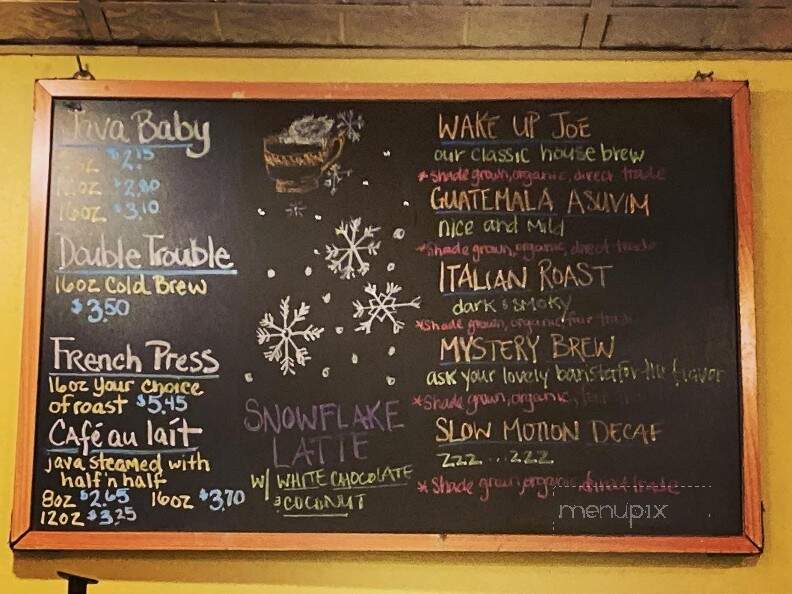 Java Baby
oz $2.15
12oz $2.80
16oz $3.10
Double Trouble
16oz Cold Brew
$3.50
French Press
16oz your choice
of roast $5.45
Café au lait
java steamed with
half n half
8oz $2.65 16oz $3.70
12oz $3.25
SNOWFLAKE
LATTE
W/ WHITE CHOCOLATE
& COCONUT
WAKE UP JOE
our classic house brew
*shade grown, organic, direct trade
GUATEMALA ASUVIM
nice and Mild
*shade grown, organic, direct trade
ITALIAN ROAST
dark & SMOKY
*shade grown, organic, fair trade
MYSTERY BREW
ask your lovely barista for the flavor
*shade grown, organic, fair
SLOW MOTION DECAF
ZZZ...ZZZ
*shade grown, organic, direct trade
menupix